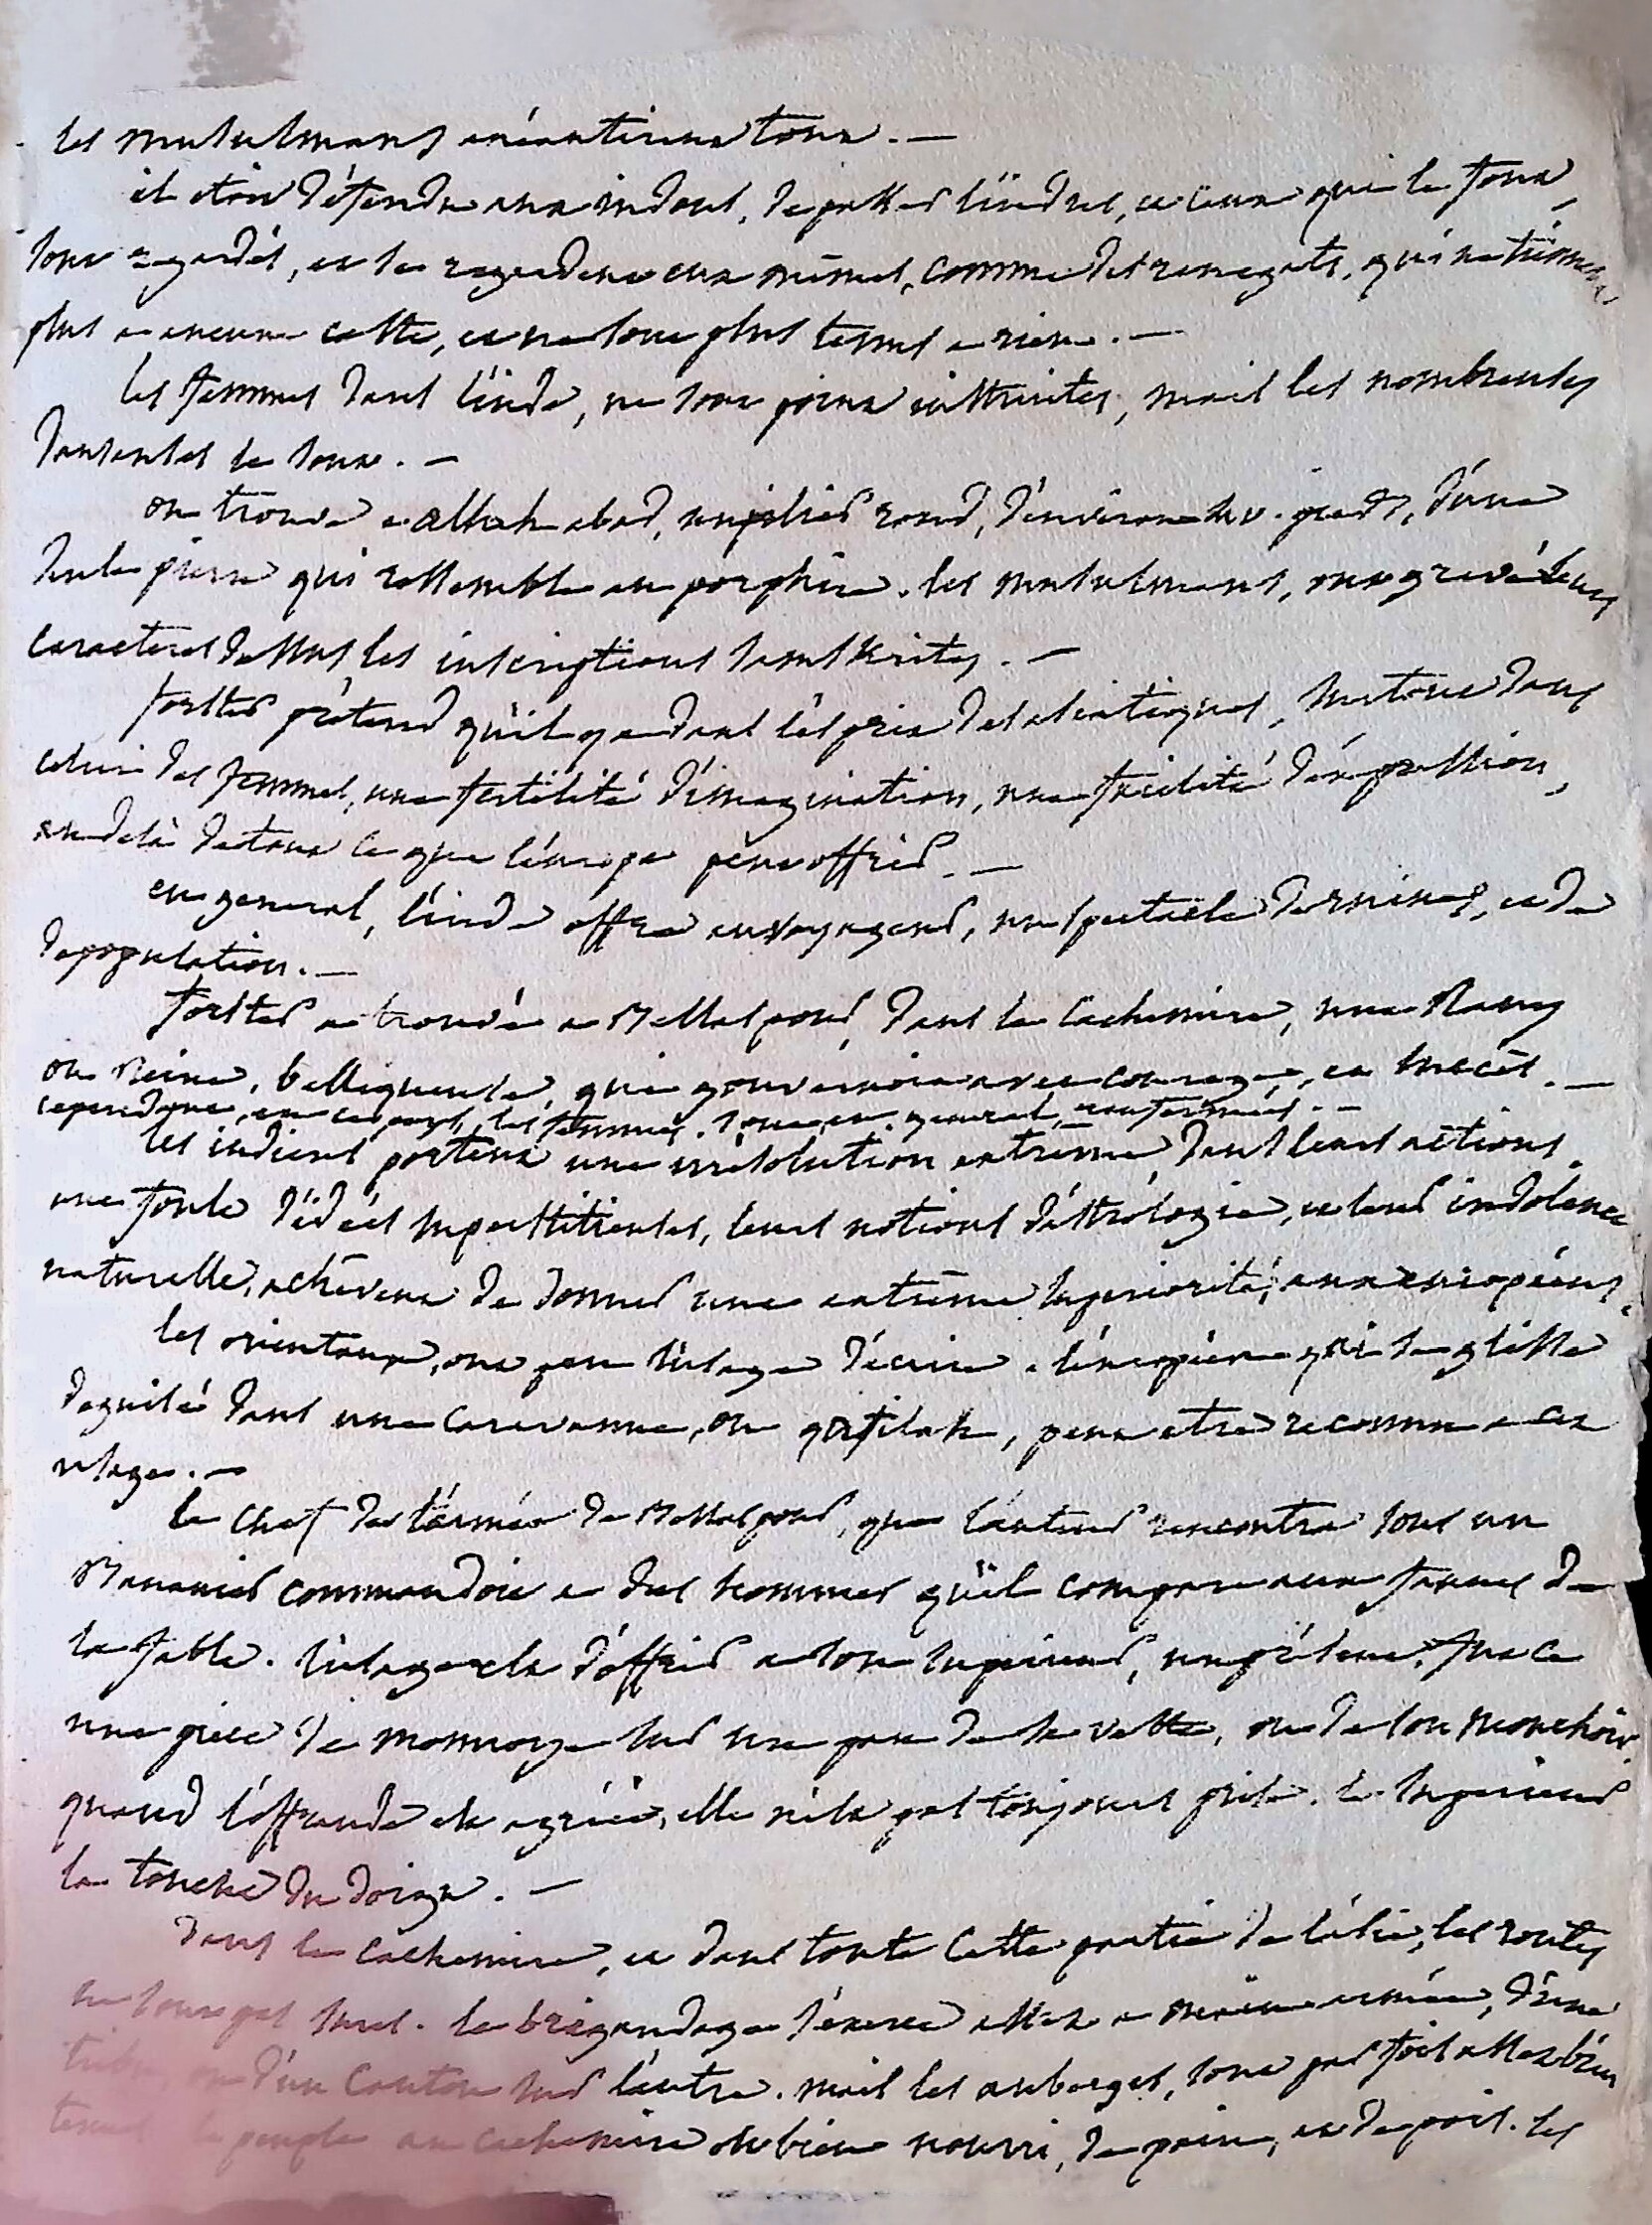 les musulmans anéantirent tout. —
il etoit défendu aux indous, de passer l'indus, et ceux qui le font,
sont regardés, et se regardent eux mêmes, comme des renegats, qui ne tiennent
plus a aucune caste, et ne sont plus tenus a rien. —
les femmes dans l'inde, ne sont point instruites, mais les nombreuses
danseuses le sont. —
on trouve a allah abad, un pilier rond, d'environ pieds, d'une
seule pierre qui ressemble au porphire. les musulmans, ont gravé leurs
caracteres dessus, les inscriptions samskrites. —
forster prétend qu'il y a dans l'esprit des asiatiques, surtout dans
celui des femmes, une fertilité d'imagination, une facilité d'expression,
au dela de tout ce que l'europe peut offrir. —
en general, l'inde offre au voyageur, un spectacle de ruines, et de
depopulation. —
forster a trouvé a Bellaspour, dans le Cachemire, une Rany
ou Reine, belliqueuse, qui gouvernoit avec courage, et succès. —
cependant, en ces pays, les femmes sont en general, renfermées. —
les indiens portent une irrésolution extrême, dans leurs actions.
une foule d'idées superstitieuses, leurs notions d'astrologie, et leur indolence
naturelle, achevent de donner une extrême superiorité, aux européens.
les orientaux, ont peu l'usage d'écrire. l'européen qui se glisse
deguisé dans une caravanne, ou qafilah, peut etre reconnu a cet
usage. —
le chef de l'armée de Bellaspour, que l'auteur rencontra sous un
Bananier commandoit a des hommes qu'il compare aux faunes de
la fable. l'usage est d'offrir a son superieur, un présent, fut ce
une piece de monnoye sur un pan de sa veste, ou de son mouchoir.
quand l'offrande est agréée, elle n'est pas toujours prise. le superieur
la touche du doigt. —
dans le Cachemire, et dans toute cette partie de l'asie, les routes
ne sont pas sures. le brigandage s'exerce assez a main armée, d'une
tribu, ou d'un canton sur l'autre. mais les auberges, sont par fois assez bien
tenues le peuple au cachemire est bien nourri, de pain, et de pois. les